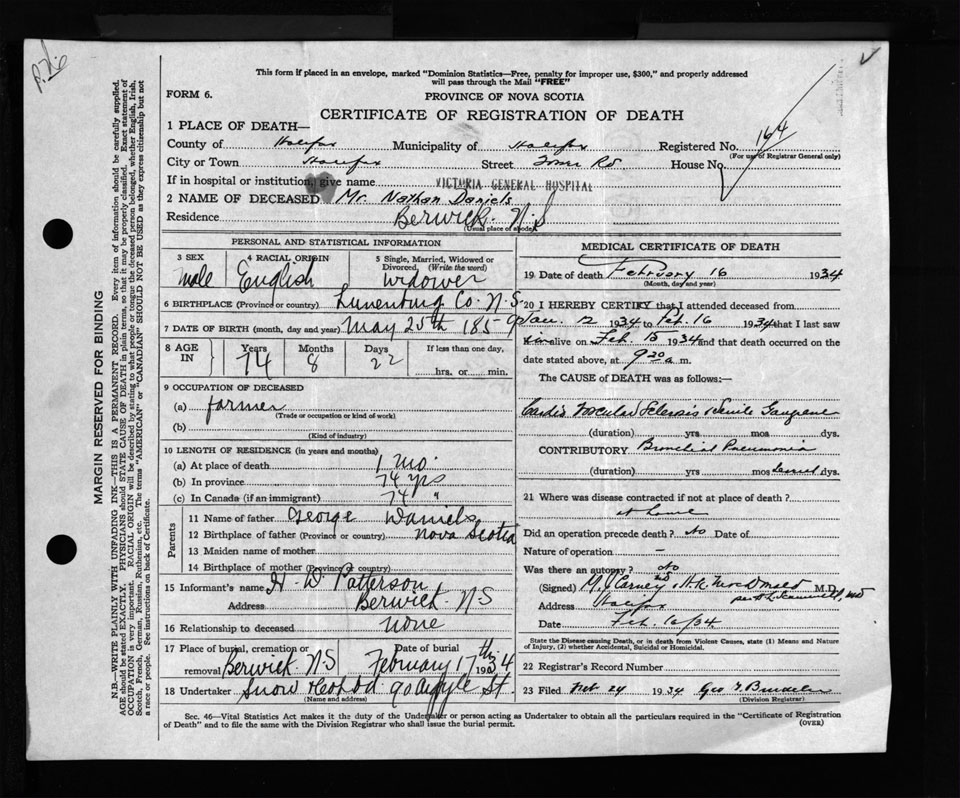 P.26
This form if placed in an envelope, marked "Dominion Statistics—Free, penalty for improper use, $300," and properly addressed
will pass through the Mail "FREE"
FORM 6.
PROVINCE OF NOVA SCOTIA
CERTIFICATE OF REGISTRATION OF DEATH
1 PLACE OF DEATH—
County of Halifax Municipality of Halifax Registered No. 164
(For use of Registrar General only)
City or Town Halifax Street Tower Rd House No.
If in hospital or institution, give name VICTORIA GENERAL HOSPITAL
2 NAME OF DECEASED Mr. Nathan Daniels
Residence Berwick. N S
(Usual place of abode)
PERSONAL AND STATISTICAL INFORMATION
3 SEX male
4 RACIAL ORIGIN English
5 Single, Married, Widowed or Divorced. (Write the word) widower
6 BIRTHPLACE (Province or country) Lunenburg Co. N.S.
7 DATE OF BIRTH (month, day and year) May 25th 1859
8 AGE IN Years 74 Months 8 Days 22 If less than one day, hrs. or min.
9 OCCUPATION OF DECEASED
(a) farmer
(Trade or occupation or kind of work)
(b)
(Kind of industry)
10 LENGTH OF RESIDENCE (in years and months)
(a) At place of death 1 mo.
(b) In province 74 yrs
(c) In Canada (if an immigrant) 74 "
Parents
11 Name of father George Daniels
12 Birthplace of father (Province or country) Nova Scotia
13 Maiden name of mother
14 Birthplace of mother (Province or country)
15 Informant's name H. W. Patterson
Address Berwick. N S
16 Relationship to deceased none
17 Place of burial, cremation or removal Berwick. N S Date of burial February 17th 1934
18 Undertaker Snow & Co Ltd 90 Argyle St.
(Name and address)
MEDICAL CERTIFICATE OF DEATH
19 Date of death February 16 1934
(Month, day and year)
20 I HEREBY CERTIFY that I attended deceased from
Jan. 12 1934 to Feb. 16 1934 that I last saw
him alive on Feb. 15 1934 and that death occurred on the
date stated above, at 9 20 a. m.
The CAUSE OF DEATH was as follows:—
Cardio Vascular Sclerosis Senile Gangrene
(duration) yrs mos dys.
CONTRIBUTORY Bronchial Pneumonia
(duration) yrs mos several dys.
21 Where was disease contracted if not at place of death?
at home
Did an operation precede death? No Date of
Nature of operation —
Was there an autopsy? No
(Signed) M. J. Carney MD & H. K. MacDonald M.D.
Address Halifax
Date Feb. 16/34
State the Disease causing Death, or in death from Violent Causes, state (1) Means and
Nature of Injury, (2) whether Accidental, Suicidal or Homicidal.
22 Registrar's Record Number
23 Filed Feb 24 1934 Geo
(Division Registrar)
Sec. 46—Vital Statistics Act makes it the duty of the Undertaker or person acting as Undertaker to obtain all the particulars required in the "Certificate of Registration
of Death" and to file the same with the Division Registrar who shall issue the burial permit.
(OVER)
MARGIN RESERVED FOR BINDING
N.B.—WRITE PLAINLY WITH UNFADING INK—THIS IS A PERMANENT RECORD. Every item of information should be carefully supplied.
AGE should be stated EXACTLY. PHYSICIANS should STATE CAUSE OF DEATH in plain terms, so that it may be properly classified. Exact statement of
OCCUPATION is very important. RACIAL ORIGIN will be described by stating to what people or tongue the deceased person belonged, whether English, Irish,
Scotch, French, German, Russian, Ruthenian, etc. The terms "AMERICAN" or "CANADIAN" SHOULD NOT BE USED as they express citizenship but not
a race or people. See instructions on back of Certificate.